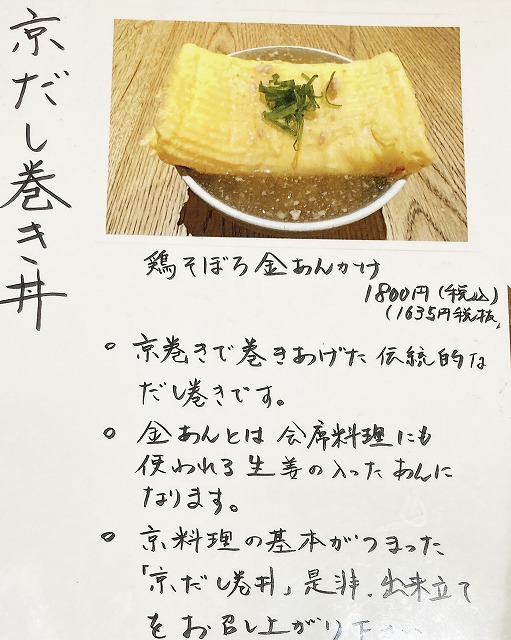 京だし巻き丼
鶏そぼろ金あんかけ
1800円(税込)
(1635円税抜
○ 京巻きで巻きあげた伝統的な
だし巻きです。
○ 金あんとは会席料理にも
使われる生姜の入ったあんに
なります。
○ 京料理の基本がつまった
「京だし巻丼」是非、出来立て
をお召し上がり下さい